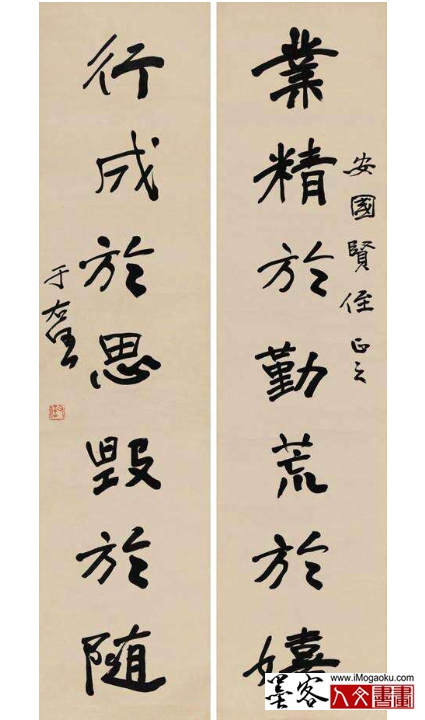 業精於勤荒於嬉
安國賢侄正之
行成於思毀於隨
于右任
www.iMogaoku.com
墨客
人文書畫